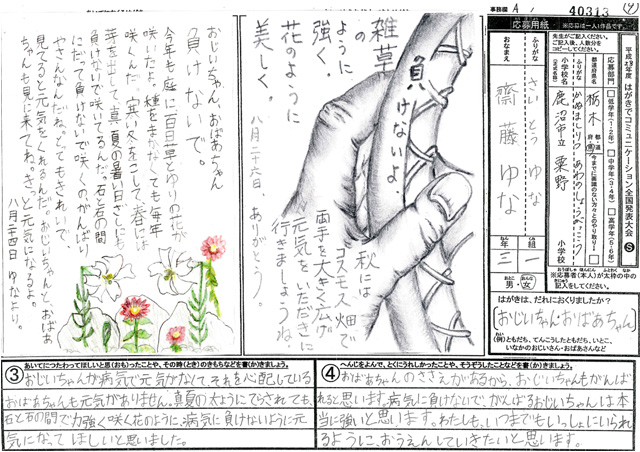 事務欄 A
40313
④
応募用紙
※応募は一人1作品です。
先生がご記入ください。
ご記入後、人数分を
コピーしてください。
平成23年度 はがきでコミュニケーション全国発表大会 S
応募部門
□低学年(1・2年)
□中学年(3・4年)
□高学年(5・6年)
都道府県名
栃木
都道府県
ふりがな
小学校名
(正式名称)
かぬましりつ あわのしょうがっこう
鹿沼市立 粟野 小学校
今までに面識のない方々とのやり取り
ふりがな
さいとう ゆな
おなまえ
齋藤 ゆな
三年
一組
男・女
おとこ
おんな
※応募者(本人)が太枠の中の
記入をしてください。
はがきは、だれにおくりましたか?
[おじいちゃん・おばあちゃん]
(例)ともだち、てんこうしたともだち、いとこ、
いなかのおじいさん・おばあさんなど
おじいちゃん、おばあちゃん
負けないで。
今年も庭に百日草とゆりの花が
咲いたよ。種をまかなくても毎年
咲くんだ。寒い冬をこして、春には
芽を出して、真夏の暑い日ざしにも
負けないで咲いてるんだ。石と石の間
にだって負けないで咲くのがんばり
やさんなんだね。とってもきれいで、
見てると元気をくれるんだ。おじいちゃんと、おばあ
ちゃんも見に来てね。きっと元気になるよ。
八月二十四日 ゆなより。
雑草
の
ように
強く
花のように
美しく。
八月二十六日、ありがとう。
負けないよ。
秋には
コスモス畑で
両手を大きく広げ
元気をいただきに
行きましょうね。
③ あいてにつたわってほしいと思(おも)ったことや、その時(とき)のきもちなどを書(か)きましょう。
おじいちゃんが病気で元気がなくて、それを心配している
おばあちゃんも元気がありません。真夏の太ようにてらされても、
石と石の間で力強く咲く花のように、病気に負けないように元
気になってほしいと思いました。
④ へんじをよんで、とくにうれしかったことや、そうぞうしたことなどを書(か)きましょう。
おばあちゃんのささえがあるから、おじいちゃんもがんば
れると思います。病気に負けないで、がんばるおじいちゃんは本
当に強いと思います。わたしも、いつまでもいっしょにいられ
るように、おうえんしていきたいと思います。